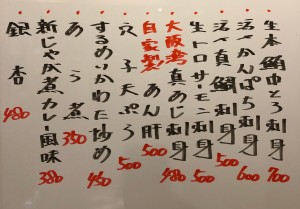 生本鮪中とろ刺身 700
活〆かんぱち刺身 600
活〆真鯛刺身 500
生トロサーモン刺身 500
大阪湾真あじ刺身 480
自家製あん肝 500
穴子天ぷら 500
するめいかわた炒め 450
あら煮 350
新じゃが煮カレー風味 380
銀杏 480